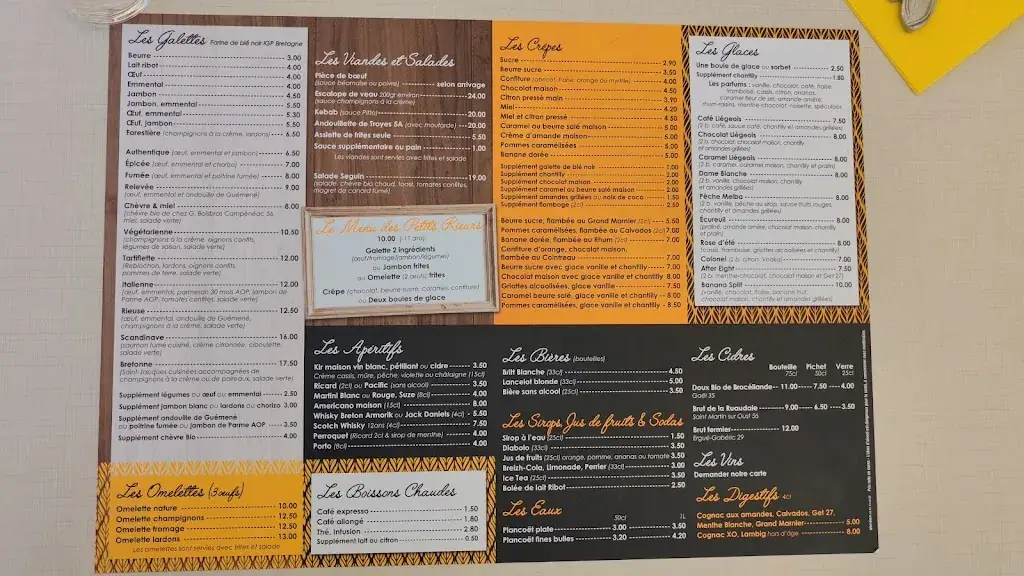 Les Galettes Farine de blé noir IGP Bretagne
Beurre 3.00
Lait ribot 4.00
Œuf 4.00
Emmental 4.00
Jambon 4.50
Jambon, emmental 5.50
Œuf, emmental 5.30
Œuf, jambon 5.50
Forestière (champignons à la crème, lardons) 6.50
Authentique (œuf, emmental et jambon) 6.50
Épicée (œuf, emmental et chorizo) 7.00
Fumée (œuf, emmental et poitrine fumée) 8.00
Relevée 9.00
(œuf, emmental et andouille de Guémené)
Chèvre & miel 8.00
(chèvre bio de chez G. Bolsbras Campénéac 56,
miel, salade verte)
Végétarienne 10.50
(champignons à la crème, oignons confits,
légumes de saison, salade verte)
Tartiflette 12.00
(Reblochon, lardons, oignons confits,
pommes de terre, salade verte)
Italienne 12.00
(œuf, emmental, parmesan 30 mois AOP, jambon de
Parme AOP, tomates confites, salade verte)
Rieuse 12.50
(œuf, emmental, andouille de Guémené,
champignons à la crème, salade verte)
Scandinave 16.00
(saumon fumé cuisiné, crème citronnée, ciboulette,
salade verte)
Bretonne 17.50
(Saint-Jacques cuisinées accompagnées de
champignons à la crème ou de poireaux, salade verte)
Supplément légumes ou œuf ou emmental 2.50
Supplément jambon blanc ou lardons ou chorizo 3.00
Supplément andouille de Guémené
ou poitrine fumée ou jambon de Parme AOP 3.50
Supplément chèvre Bio 4.00
Les Omelettes (3œufs)
Omelette nature 10.00
Omelette champignons 12.50
Omelette fromage 12.50
Omelette lardons 13.00
Les omelettes sont servies avec frites et salade
Les Viandes et Salades
Pièce de bœuf
(sauce béarnaise ou poivre) selon arrivage
Escalope de veau 200gr environ 24.00
(sauce champignons à la crème)
Kebab (sauce Pitta) 20.00
Andouillette de Troyes 5A (avec moutarde) 20.00
Assiette de frites seule 5.50
Sauce supplémentaire ou pain 1.00
Les viandes sont servies avec frites et salade
Salade Seguin 19.00
(salade, chèvre bio chaud, toast, tomates confites,
magret de canard fumé)
Le Menu des Petits Rieurs
10.00 (-11 ans)
Galette 2 ingrédients
(œuf/fromage/jambon/légumes)
ou Jambon frites
ou Omelette (2 œufs) frites
Crêpe (chocolat, beurre sucre, caramel, confiture)
ou Deux boules de glace
Les Apéritifs
Kir maison vin blanc, pétillant ou cidre 3.50
Crème cassis, mûre, pêche, violette ou châtaigne (15cl)
Ricard (2cl) ou Pacific (sans alcool) 3.50
Martini Blanc ou Rouge, Suze (8cl) 4.00
Americano maison (15cl) 8.00
Whisky Breton Armorik ou Jack Daniels (4cl) 5.50
Scotch Whisky 12ans (4cl) 7.50
Perroquet (Ricard 2cl & sirop de menthe) 4.00
Porto (8cl) 4.00
Les Boissons Chaudes
Café expresso 1.50
Café allongé 1.80
Thé, Infusion 2.80
Supplément lait ou citron 0.50
Les Crêpes
Sucre 2.90
Beurre sucre 3.50
Confiture (abricot, fraise, orange ou myrtille) 4.00
Chocolat maison 4.50
Citron pressé main 3.90
Miel 4.20
Miel et citron pressé 4.50
Caramel au beurre salé maison 5.00
Crème d'amande maison 5.00
Pommes caramélisées 5.00
Banane dorée 5.00
Supplément galette de blé noir 1.00
Supplément chantilly 2.00
Supplément chocolat maison 2.00
Supplément caramel au beurre salé maison 2.00
Supplément amandes grillées ou noix de coco 1.50
Supplément flambage (2cl) 2.50
Beurre sucre, flambée au Grand Marnier (2cl) 5.50
Pommes caramélisées, flambée au Calvados (2cl) 7.00
Banane dorée, flambée au Rhum (2cl) 7.00
Confiture d'orange, chocolat maison,
flambée au Cointreau 7.00
Beurre sucre avec glace vanille et chantilly 7.00
Chocolat maison avec glace vanille et chantilly 8.00
Griottes alcoolisées, glace vanille 7.50
Caramel beurre salé, glace vanille et chantilly 8.00
Pommes caramélisées, glace vanille et chantilly 8.50
Les Bières (bouteilles)
Britt Blanche (33cl) 4.50
Lancelot blonde (33cl) 5.00
Bière sans alcool (25cl) 3.50
Les Sirops, Jus de fruits & Sodas
Sirop à l'eau (25cl) 1.50
Diabolo (33cl) 2.50
Jus de fruits (25cl) orange, pomme, ananas ou tomate 3.50
Breizh-Cola, Limonade, Perrier (33cl) 3.00
Ice Tea (25cl) 3.50
Bolée de lait Ribot 2.50
Les Eaux
50cl 1L
Plancoët plate 3.00 3.50
Plancoët fines bulles 3.20 4.20
Les Glaces
Une boule de glace ou sorbet 2.50
Supplément chantilly 1.80
Les parfums : vanille, chocolat, café, fraise,
framboise, cassis, citron, ananas,
caramel fleur de sel, amande amère,
rhum-raisins, menthe-chocolat, noisette, spéculoos
Café Liégeois 7.50
(2 b. café, sauce café, chantilly et amandes grillées)
Chocolat Liégeois 8.00
(2 b. chocolat, chocolat maison, chantilly
et amandes grillées)
Caramel Liégeois 8.00
(2 b. caramel, caramel maison, chantilly et pralin)
Dame Blanche 8.00
(2 b. vanille, chocolat maison, chantilly
et amandes grillées)
Pêche Melba 8.00
(2 b. vanille, pêche au sirop, sauce fruits rouges,
chantilly et amandes grillées)
Écureuil 8.00
(praliné, amande amère, chocolat maison, chantilly
et pralin)
Rose d'été 8.00
(cassis, framboise, griottes alcoolisées et chantilly)
Colonel (2 b. citron, Vodka) 7.00
After Eight 7.50
(2 b. menthe-chocolat, chocolat maison et Get 27)
Banana Split 10.00
(vanille, chocolat, fraise, banane fruit
chocolat maison, chantilly et amandes grillées)
Les Cidres
Bouteille 75cl Pichet 50cl Verre 25cl
Doux Bio de Brocéliande 11.00 7.50 4.00
Gaël 35
Brut de la Ruaudaie 9.00 6.50 3.50
Saint Martin sur Oust 56
Brut fermier 12.00
Ergué-Gabéric 29
Les Vins
Demander notre carte
Les Digestifs 4cl
Cognac aux amandes, Calvados, Get 27,
Menthe Blanche, Grand Marnier 5.00
Cognac XO, Lambig hors d'âge 8.00